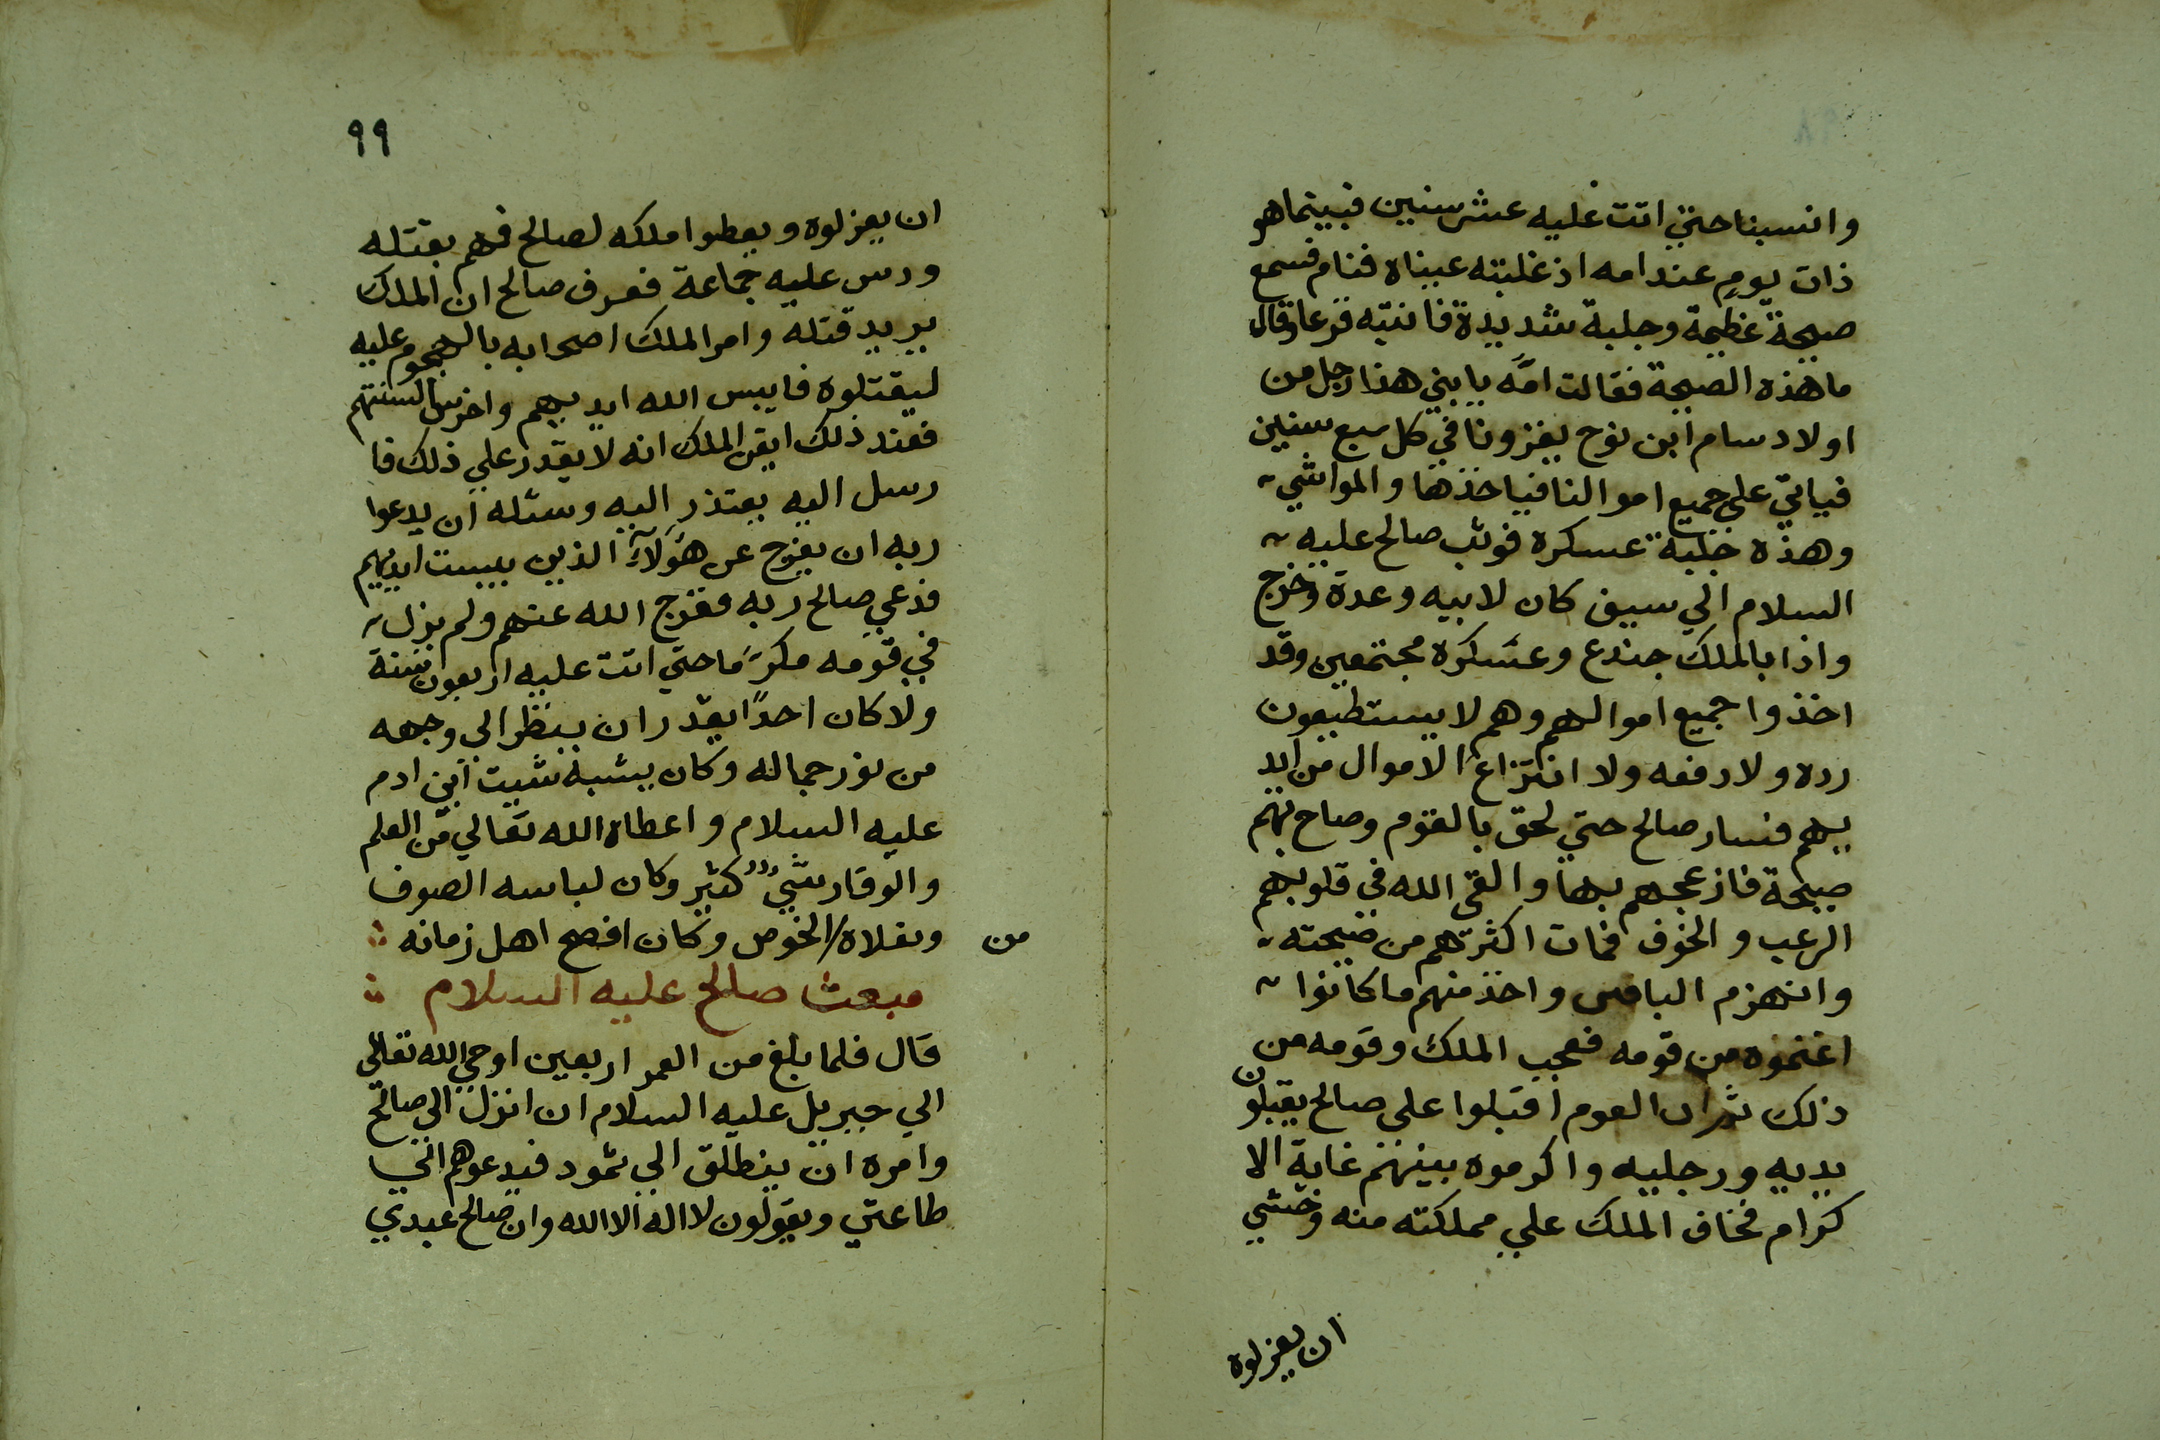 وانسبنا حتي اتت عليه عشر سنين فبينما هو
ذات يوم عند امه اذ غلبته عيناه فنام فسمع
صيحة عظيمة وجلبة شديدة فانتبه فزعا وقال
ما هذه الصيحة فقالت امه يا بني هذا رجل من
اولاد سام ابن نوح يغزونا في كل سبع سنين
فياتي على جميع اموالنا فياخذها والمواشي
وهذه جلبة عسكره فوثب صالح عليه
السلام الي سيف كان لابيه وعدة وخرج
واذا بالملك جندع وعسكره مجتمعين وقد
اخذوا جميع اموالهم وهم لا يستطيعون
رده ولا دفعه ولا انتزاع الاموال من ايد
يهم فسار صالح حتي لحق بالقوم وصاح بهم
صيحة فازعجهم بها والقى الله في قلوبهم
الرعب والخوف فمات اكثرهم من صيحته
وانهزم الباقين واخذ منهم ما كانوا
اغنموه من قومه فعجب الملك وقومه من
ذلك ثم ان القوم اقبلوا على صالح يقبلون
يديه ورجليه واكرموه بينهم غاية الا
كرام فخاف الملك علي مملكته منه وخشي
ان يعزلوه
٩٩
ان يعزلوه ويعطوا ملكه لصالح فهم بقتله
ودس عليه جماعة فعرف صالح ان الملك
يريد قتله وامر الملك اصحابه بالهجوم عليه
ليقتلوه فايبس الله ايديهم واخرس السنتهم
فعند ذلك ايقن الملك انه لا يقدر علي ذلك فا
رسل اليه يعتذر اليه وسئله ان يدعوا
ربه ان يفرج عن هؤلآء الذين يبست ايديهم
فدعي صالح ربه ففرج الله عنهم ولم يزل
في قومه مكرما حتي اتت عليه اربعون سنة
ولا كان احدًا يقدر ان ينظر الي وجهه
من نور جماله وكان يشبه شيت ابن ادم
عليه السلام واعطاه الله تعالي من العلم
والوقار شيء كثير وكان لباسه الصوف
ونعلاه من الخوص وكان افصح اهل زمانه
مبعث صالح عليه السلام
قال فلما بلغ من العمر اربعين اوحي الله تعالي
الي جبريل عليه السلام ان انزل الي صالح
وامره ان ينطلق الي ثمود فيدعوهم الي
طاعتي ويقولون لا اله الا الله وان صالح عبدي